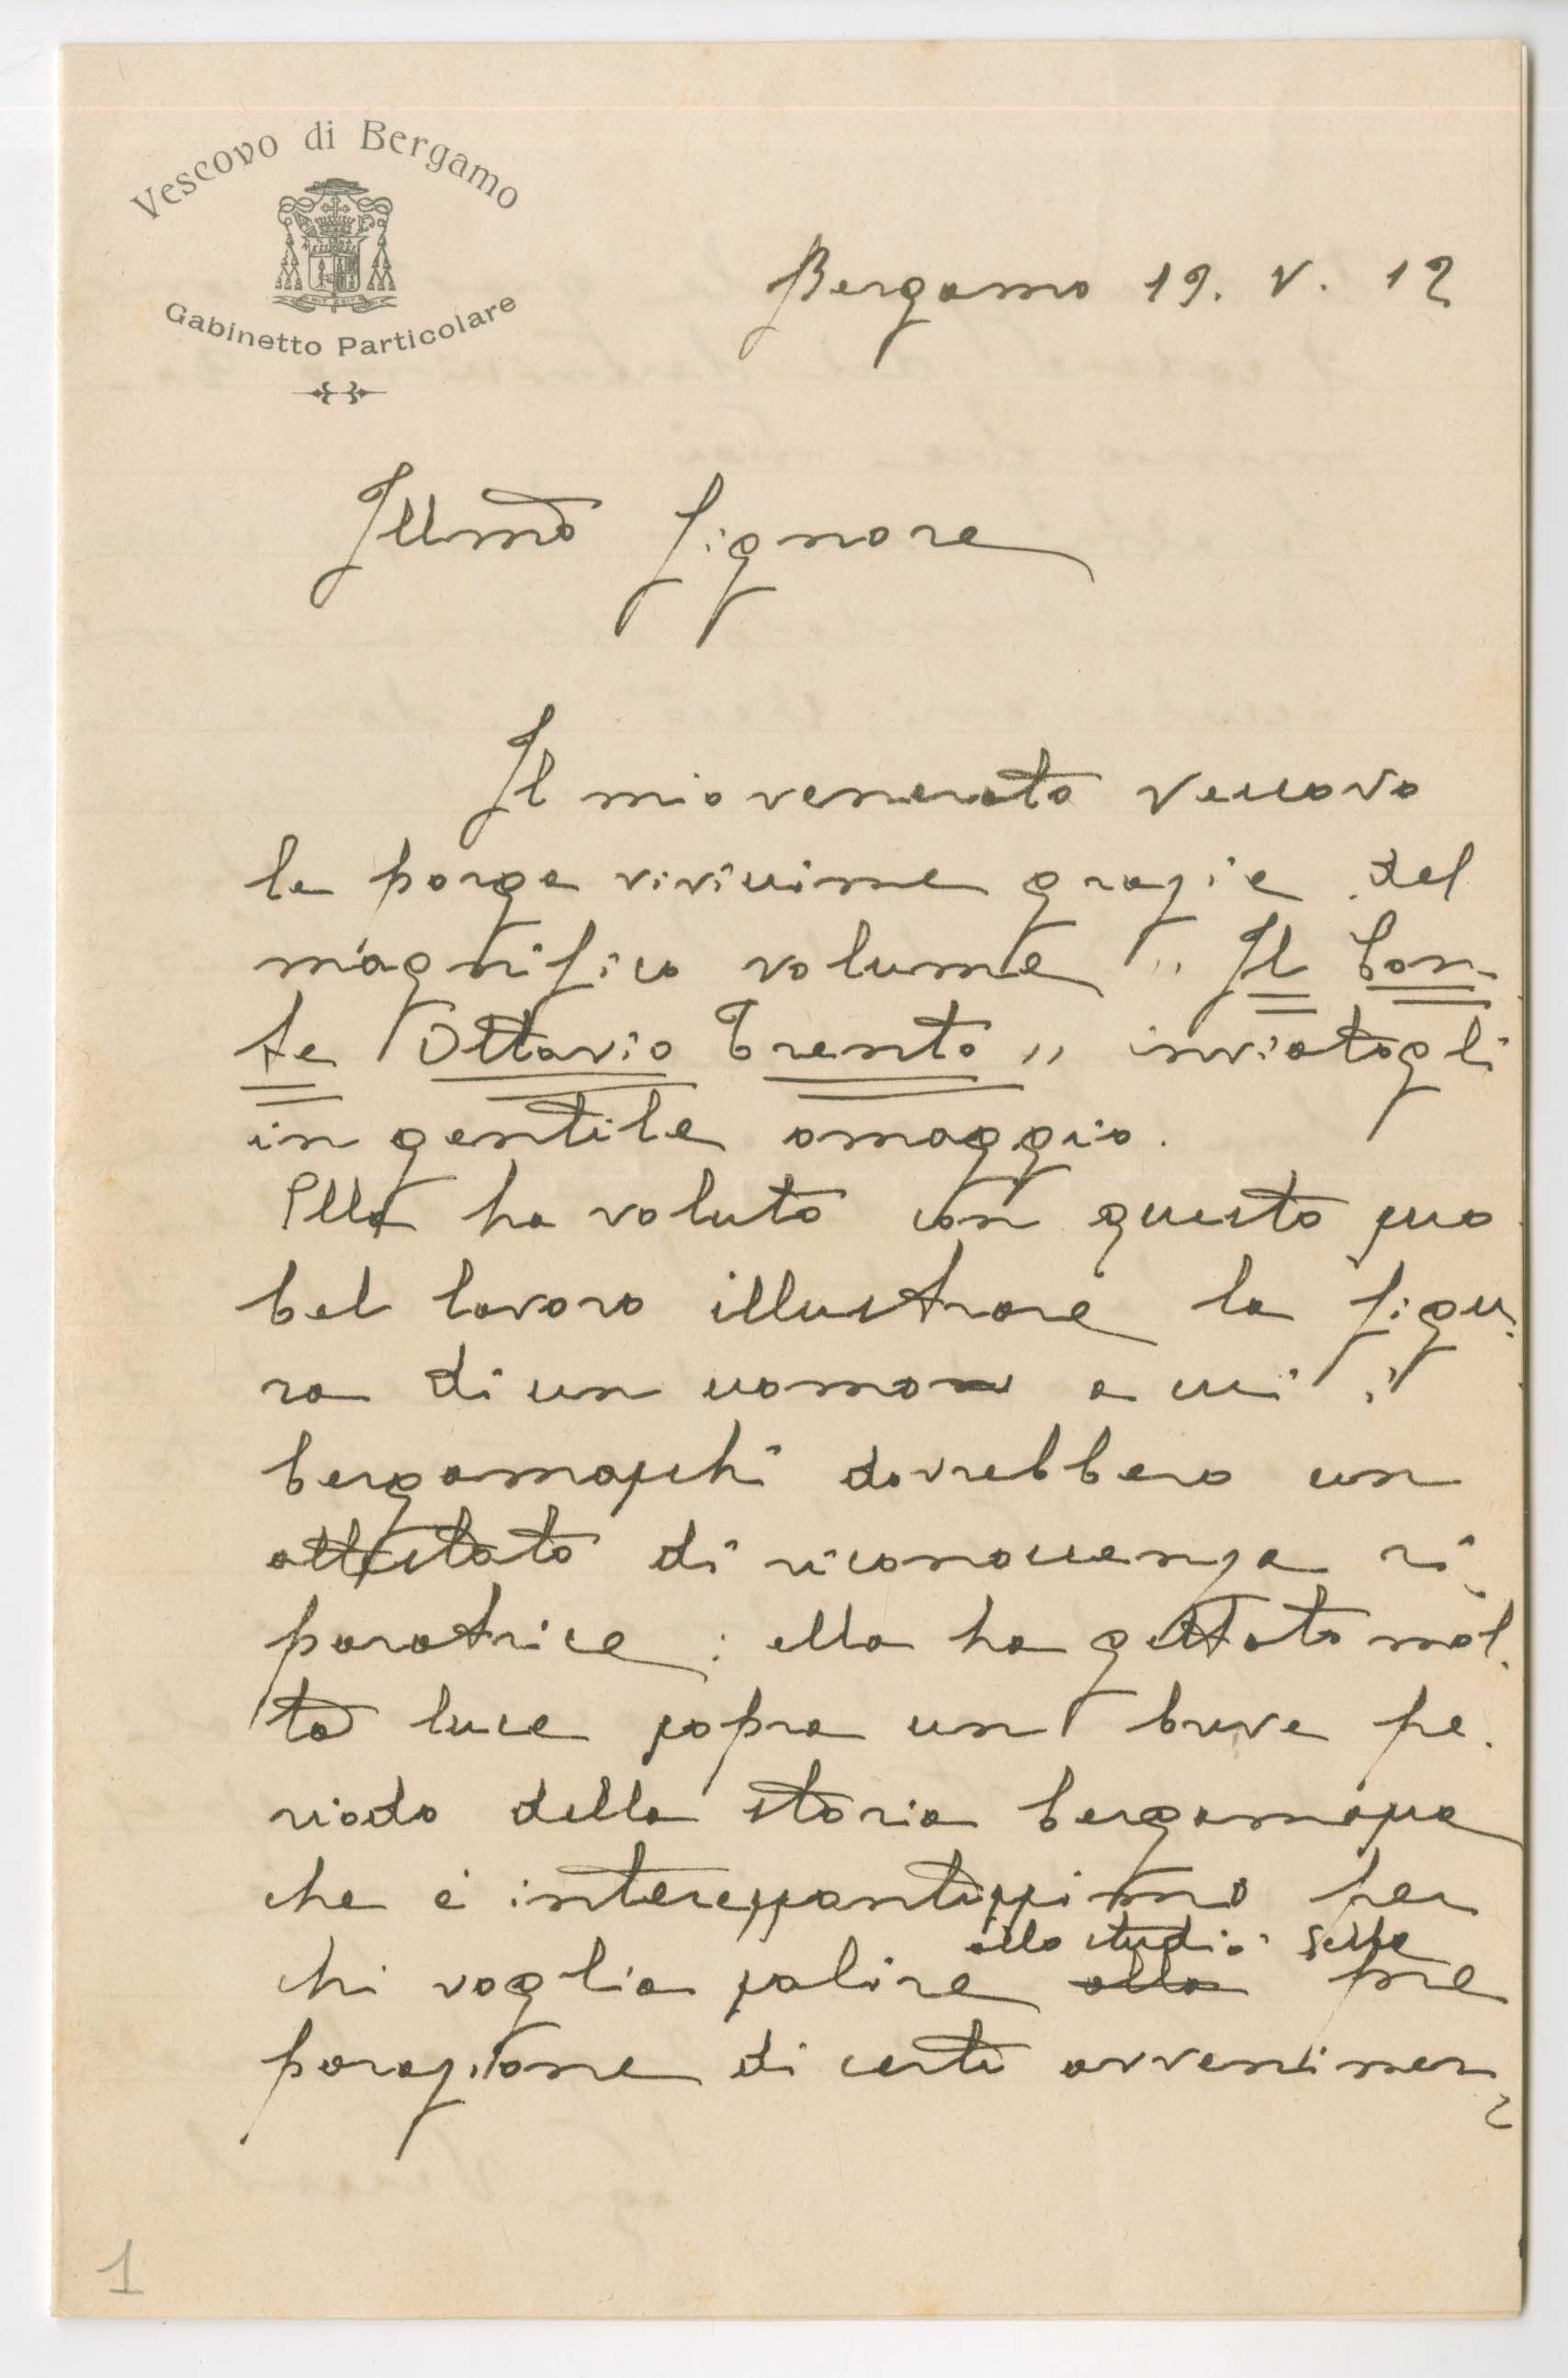 Vescovo di Bergamo
Gabinetto Particolare
Bergamo 19. V. 12
Illmo Signore
Il mio venerato Vescovo
le porge vivissime grazie del
magnifico volume „ Il Con-
te Ottavio Trento „ inviatogli
in gentile omaggio.
Ella ha voluto con questo suo
bel lavoro illustrare la figu-
ra di un uomo a cui i
bergamaschi dovrebbero un
attestato di riconoscenza ri-
paratrice: ella ha gettato mol-
to luce sopra un breve pe-
riodo della storia bergamasca
che è interessantissimo per
allo studio della
chi voglia salire alla pre
parazione di certi avvenimen
1